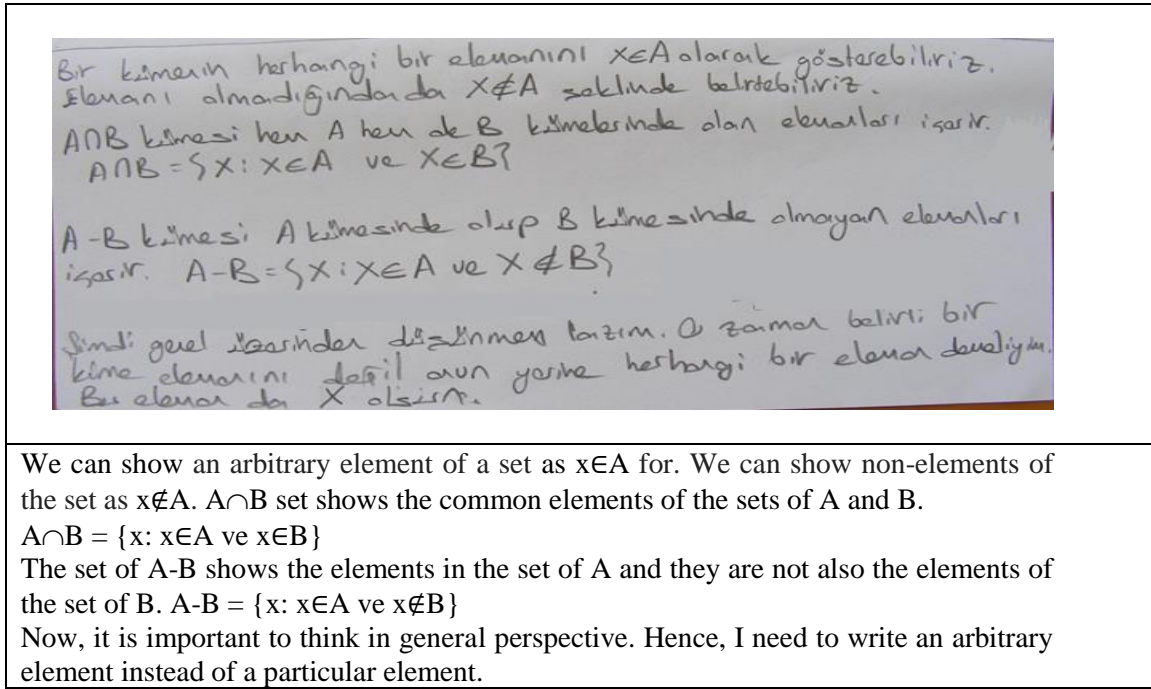 Bir kümenin herhangi bir elemanını x∈A olarak gösterebiliriz.
Elemanı olmadığında da x∉A şeklinde belirtebiliriz.
A∩B kümesi hem A hem de B kümelerinde olan elemanları içerir.
A∩B = {x: x∈A ve x∈B}
A-B kümesi A kümesinde olup B kümesinde olmayan elemanları
içerir. A-B = {x: x∈A ve x∉B}
Şimdi genel üzerinden düşünmem lazım. O zaman belirli bir
küme elemanını değil onun yerine herhangi bir eleman demeliyim.
Bu eleman da x olsun.
We can show an arbitrary element of a set as x∈A for. We can show non-elements of
the set as x∉A. A∩B set shows the common elements of the sets of A and B.
A∩B = {x: x∈A ve x∈B}
The set of A-B shows the elements in the set of A and they are not also the elements of
the set of B. A-B = {x: x∈A ve x∉B}
Now, it is important to think in general perspective. Hence, I need to write an arbitrary
element instead of a particular element.